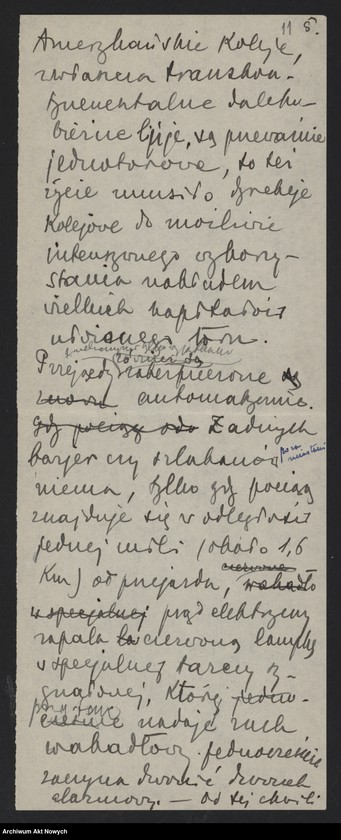 11 5.
Amerykańskie Koleje,
zwłaszcza transkon-
tynentalne daleko-
bieżne linje, są przeważnie
jednotorowe, to też
życie zmusiło dyrekcje
Kolejowe do możliwie
intensywnego wykorzy-
stania nakładem
wielkich kapitałów
ułożonego toru.
również są
Przejazdy zabezpieczone są
znowu automatycznie.
gdy pociąg odo Żadnych
barjer czy szlabanów poza miastami
niema, tylko gdy pociąg
znajduje się w odległości
jednej mili (około 1,6
czerwone
Km) od przejazdu, wahadło
w specjalnej prąd elektryczny
zapala la czerwoną lampkę
w specjalnej tarczy sy-
gnałowej, której jedno-
przy tem
cześnie nadaje ruch
wahadłowy. jednocześnie
zaczyna dzwonić dzwonek
alarmowy. — Od tej chwili
Archiwum Akt Nowych